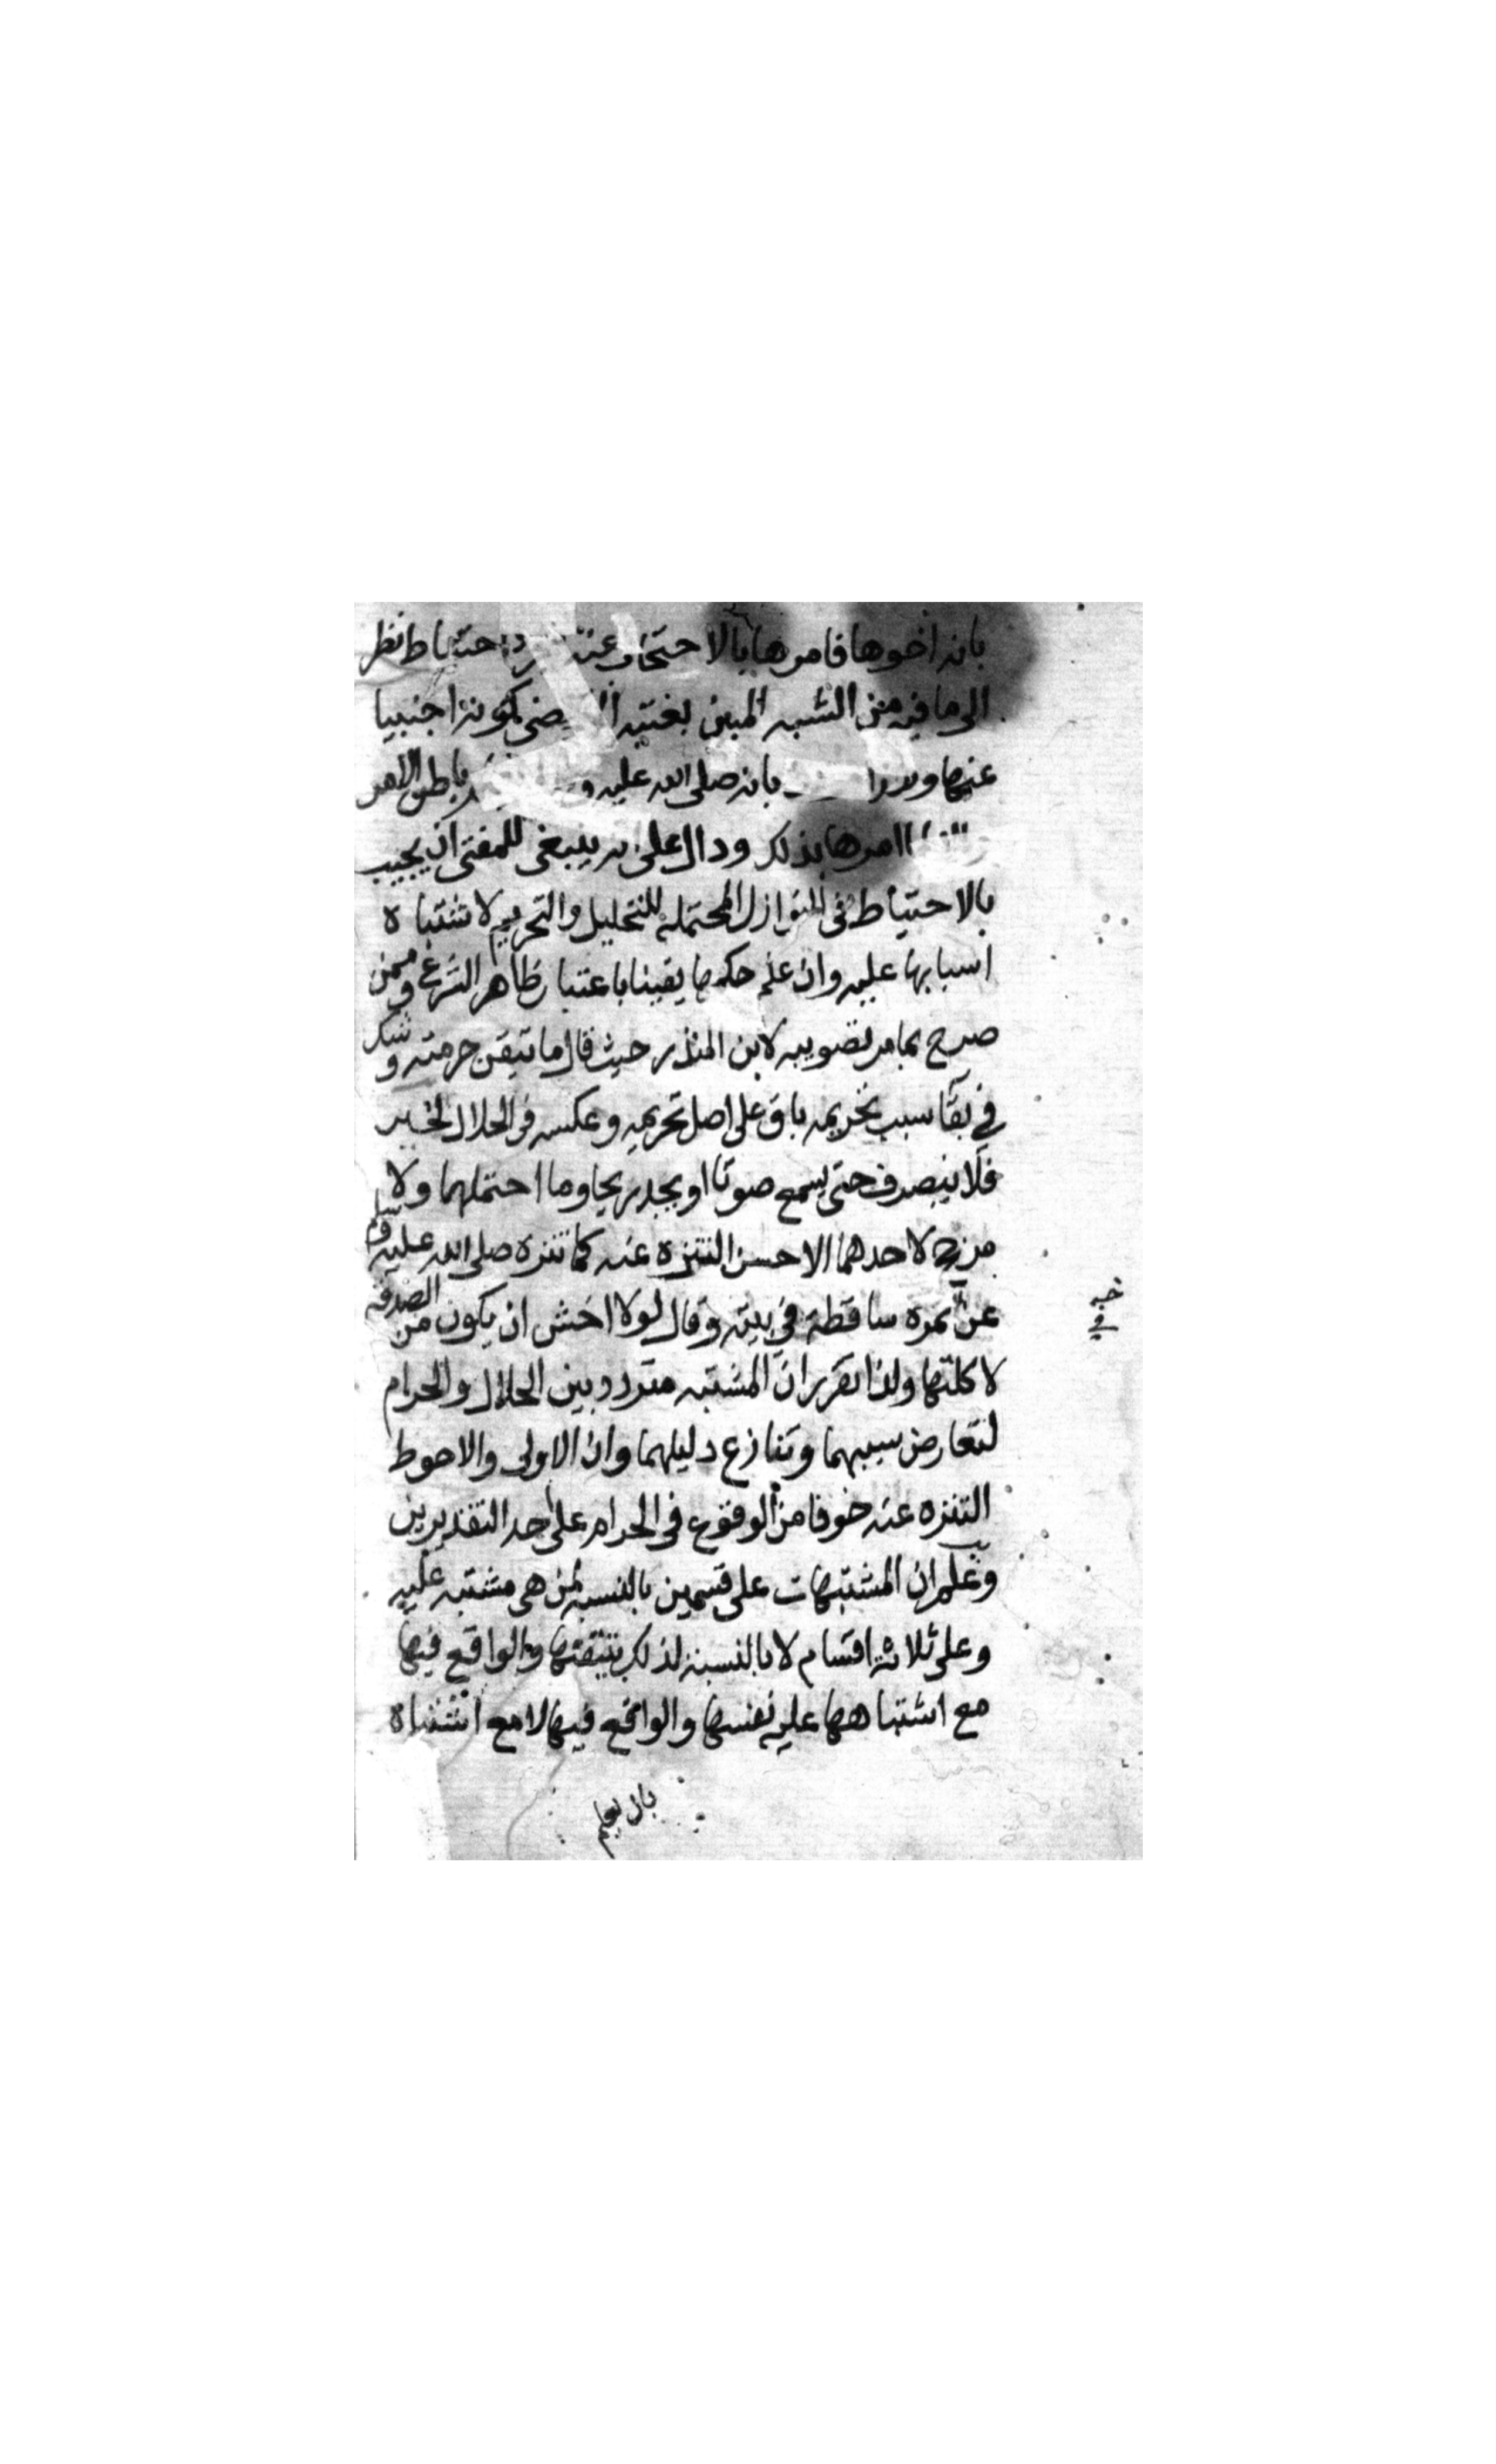 بانه اخوها فامرها بالاحتجاب عنه حتياط نظر
الى ما فيه من الشبه المبين بعتبه المقتضى لكونه اجنبيا
عنها و بانه صلى الله عليه و باطن الامر
امرها بذلك ودال على انه ينبغى للمفتى ان يجيب
بالاحتياط فى النوازل المحتملة للتحليل والتحريم لاشتباه
اسبابها عليه وان علم حكمها يقينا باعتبار ظاهر الشرع وممن
صرح بما مر تصويبه لابن المنذر حيث قال ما تيقن حرمته وشك
في بقا سبب تحريمه باق على اصل تحريمه وعكسه فى الحلال لخبر
فلا ينصرف حتى يسمع صوتا او يجد ريحا وما احتملهما ولا
مرجح لاحدهما الاحسن التنزه عنه كما تنزه صلى الله عليه وسلم
عن تمره ساقطة في بيته وقال لولا اخش ان يكون من الصدقة
لاكلتها ولذا تقرر ان المشتبه متردد بين الحلال والحرام
لتعارض سببهما وتنازع دليلهما وان الاولى والاحوط
التنزه عنه خوفا من الوقوع فى الحرام على احد التقديرين
وعلم ان المشتبهات على قسمين بالنسبة لمن هى مشتبه عليه
وعلى ثلاثة اقسام لا بالنسبة لذلك والواقع فيها
مع اشتباهها عليه نفسها والواقع فيها لا مع اشتباه